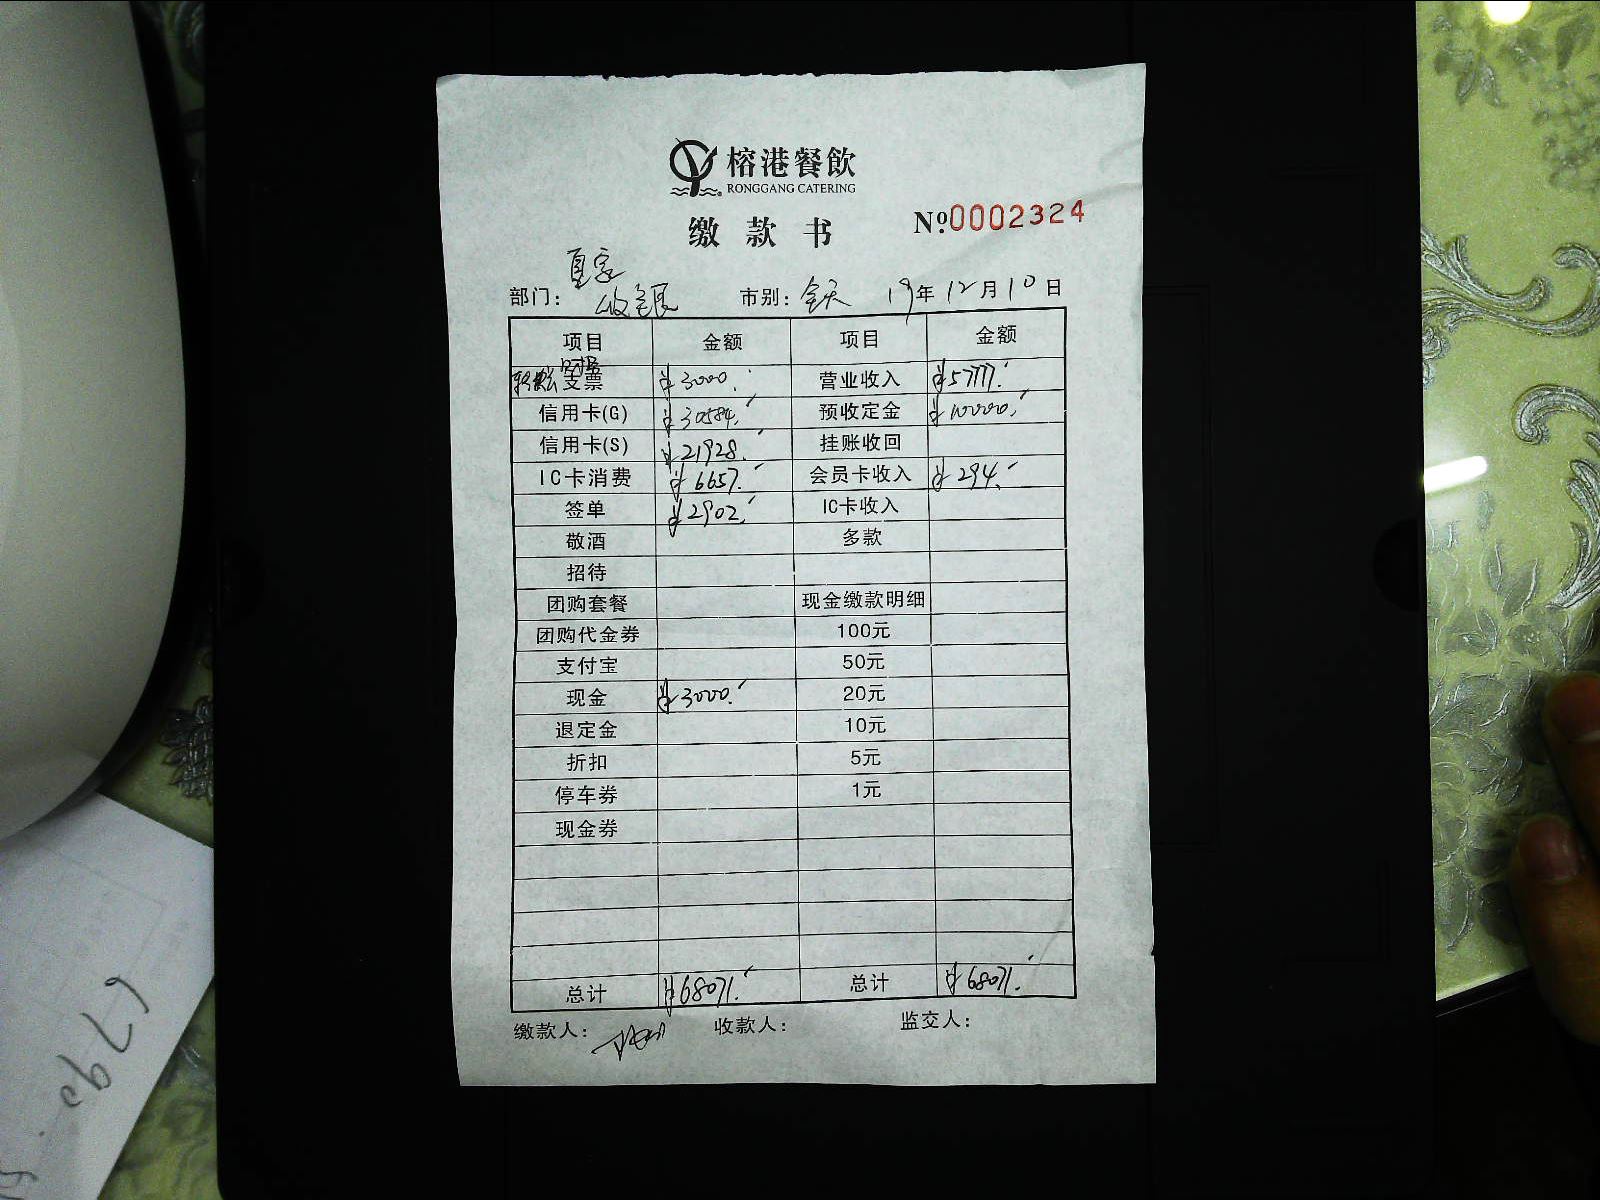 榕港餐飲
RONGGANG CATERING
缴款书 №0002324
部门: 收银 市别: 全天 19年12月10日
项目 金额 项目 金额
支票 ¥3000. 营业收入 ¥57777.
信用卡(G) ¥30584. 预收定金 ¥10000.
信用卡(S) ¥21928. 挂账收回
IC卡消费 ¥6657. 会员卡收入 ¥294.
签单 ¥2902. IC卡收入
敬酒 多款
招待
团购套餐 现金缴款明细
团购代金券 100元
支付宝 50元
现金 ¥3000. 20元
退定金 10元
折扣 5元
停车券 1元
现金券
总计 ¥68071. 总计 ¥68071.
缴款人: 收款人: 监交人: